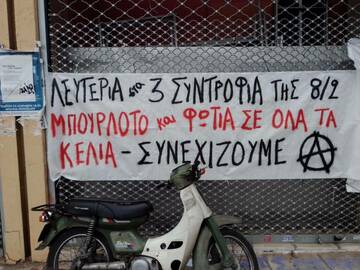 ΛΕΥΤΕΡΙΑ στα 3 ΣΥΝΤΡΟΦΙΑ ΤΗΣ 8/2
ΜΠΟΥΡΛΟΤΟ και ΦΩΤΙΑ ΣΕ ΟΛΑ ΤΑ
ΚΕΛΙΑ - ΣΥΝΕΧΙΖΟΥΜΕ Ⓐ